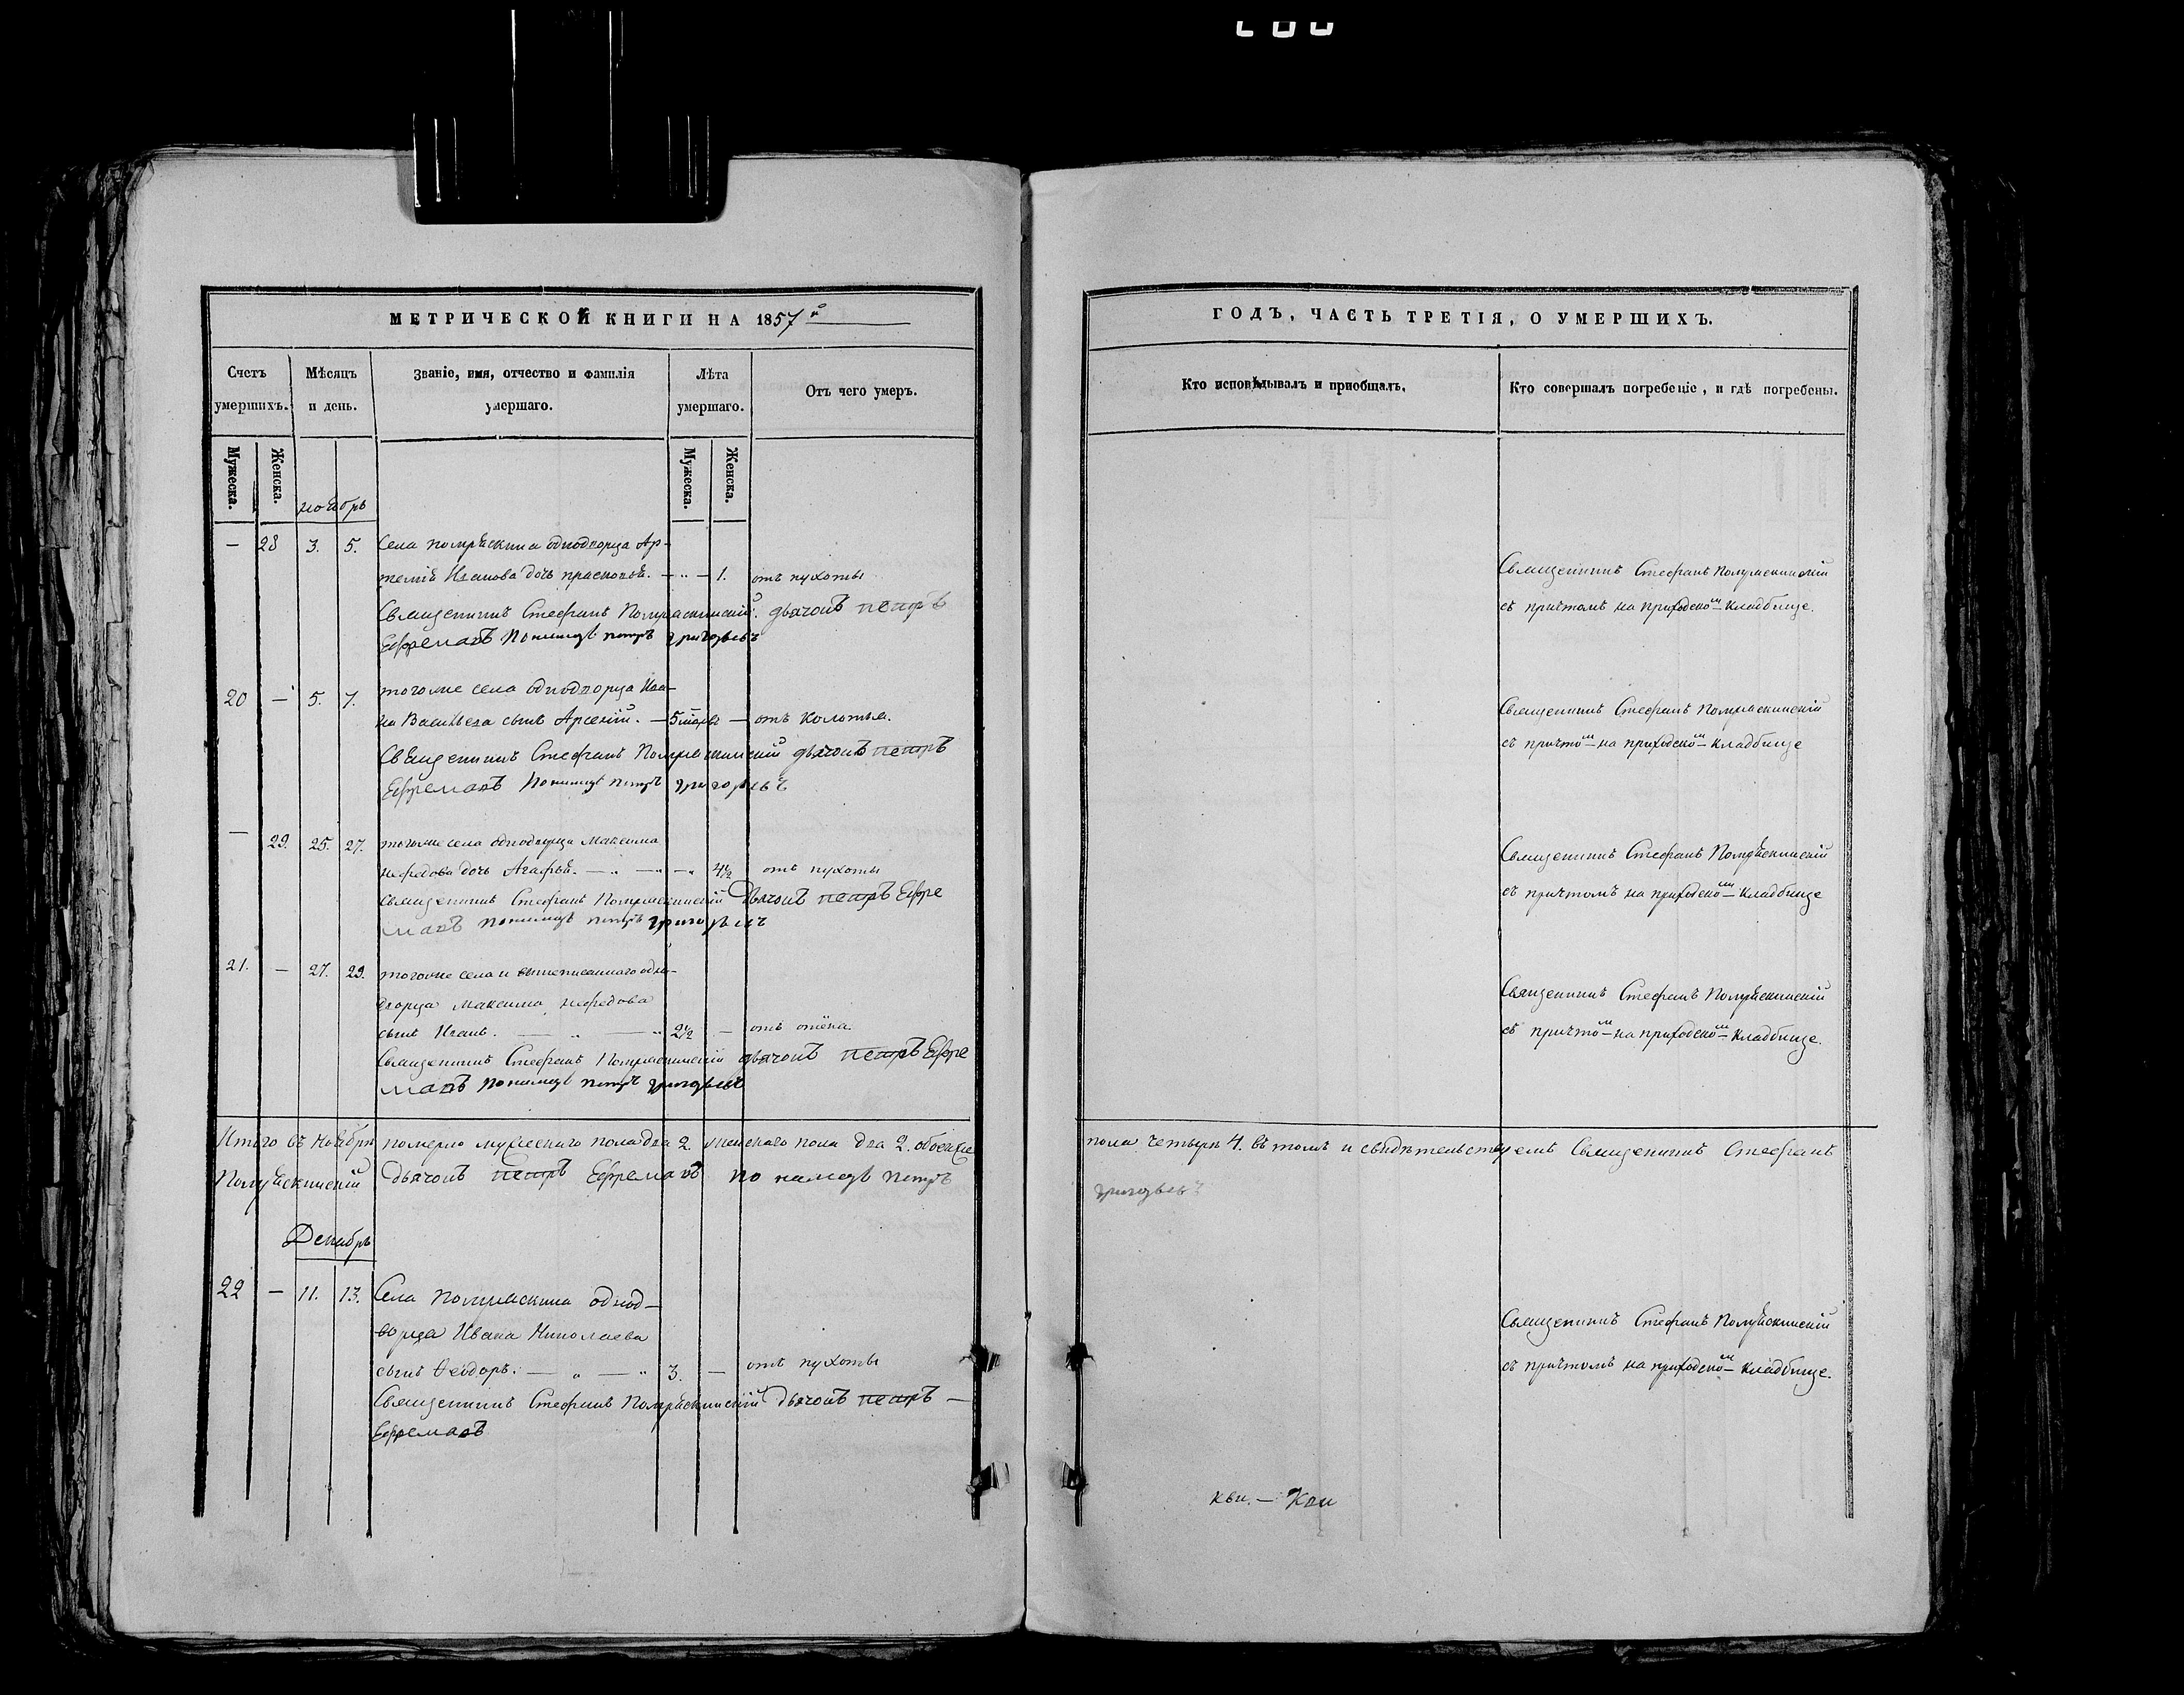 МЕТРИЧЕСКОЙ КНИГИ НА 1857й
Счетъ умершихъ.
Мѣсяцъ и день.
Званіе, имя, отчество и фамилія умершаго.
Лѣта умершаго.
Отъ чего умеръ.
Мужеска.
Женска.
Мужеска.
Женска.
ноябрь
— 28 3. 5. Села Полряскина однодворца Ар-
темія Иванова дочь прасковья. — „ — 1. отъ сухоты
Священникъ Стефанъ Полряскинскій. дьячокъ петръ
Ефремовъ Пономарь петръ григорьевъ
20 — 5. 7. тогоже села однодворца Ива-
на Васильева сынъ Арсеній. — 5 — отъ колотья.
Священникъ Стефанъ Полряскинскій дьячокъ петръ
Ефремовъ Пономарь петръ григорьевъ
— 29. 25. 27. тогоже села однодворца Максима
нефедова дочь Агафья. — „ — „ — „ 4½ отъ сухоты
священникъ Стефанъ Полряскинскій Дьячокъ петръ Ефре
мовъ пономарь петръ григорьевъ
21. — 27. 29. тогоже села и вышеписаннаго одно-
дворца Максима нефедова
сынъ Иванъ. — „ — „ 2½ —
Священникъ Стефанъ Полряскинскій дьячокъ петръ Ефре
мовъ пономарь петръ григорьевъ
Итого въ ноябрѣ померло мужескаго пола два 2. женскаго пола два 2. обоего
Полряскинскій Дьячокъ петръ Ефремовъ пономарь петръ
Декабрь
22 — 11. 13. Села Полряскина однод-
ворца Ивана Николаева
сынъ Ѳеодоръ. — „ — „ 3. — отъ сухоты
Священникъ Стефанъ Полряскинскій Дьячокъ петръ —
Ефремовъ
ГОДЪ, ЧАСТЬ ТРЕТІЯ, О УМЕРШИХЪ.
Кто исповѣдывалъ и пріобщалъ.
Кто совершалъ погребеніе, и гдѣ погребены.
Священникъ Стефанъ Полряскинскій
съ причтомъ на приходском кладбище.
Священникъ Стефанъ Полряскинскій
съ причтом на приходском кладбище
Священникъ Стефанъ Полряскинскій
съ причтомъ на приходском кладбище
Священникъ Стефанъ Полряскинскій
съ причтом на приходском кладбище.
пола четыри 4. въ томъ и свидѣтельствуемъ Священникъ Стефанъ
григорьевъ
Священникъ Стефанъ Полряскинскій
съ причтомъ на приходском кладбище.